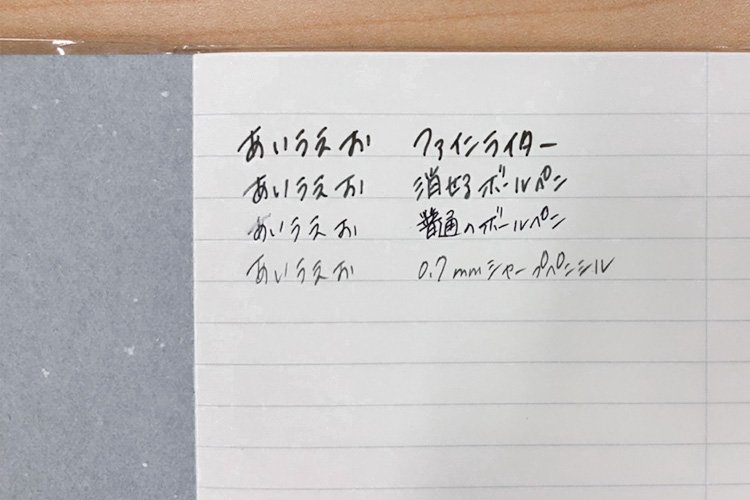 あいうえお ファインライター
あいうえお 消せるボールペン
あいうえお 普通のボールペン
あいうえお 0.7mmシャープペンシル